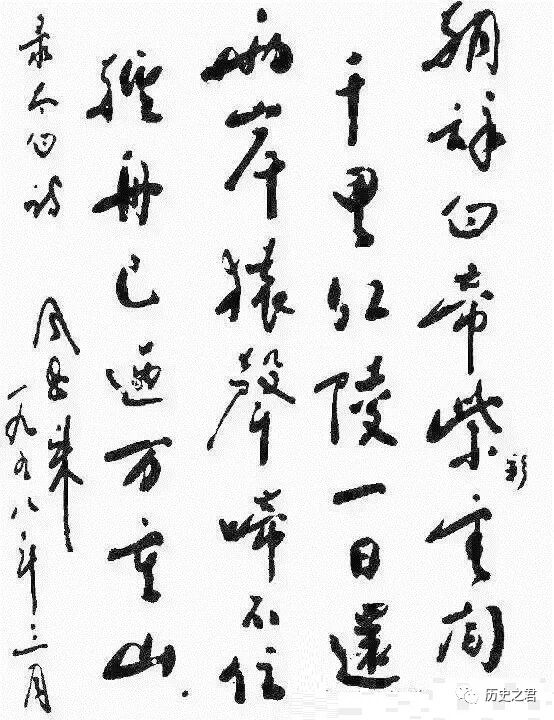 朝辞白帝紫云间
彩
千里江陵一日還
两岸猿聲啼不住
轻舟已過万重山
录太白诗
一九九八年三月
历史之君